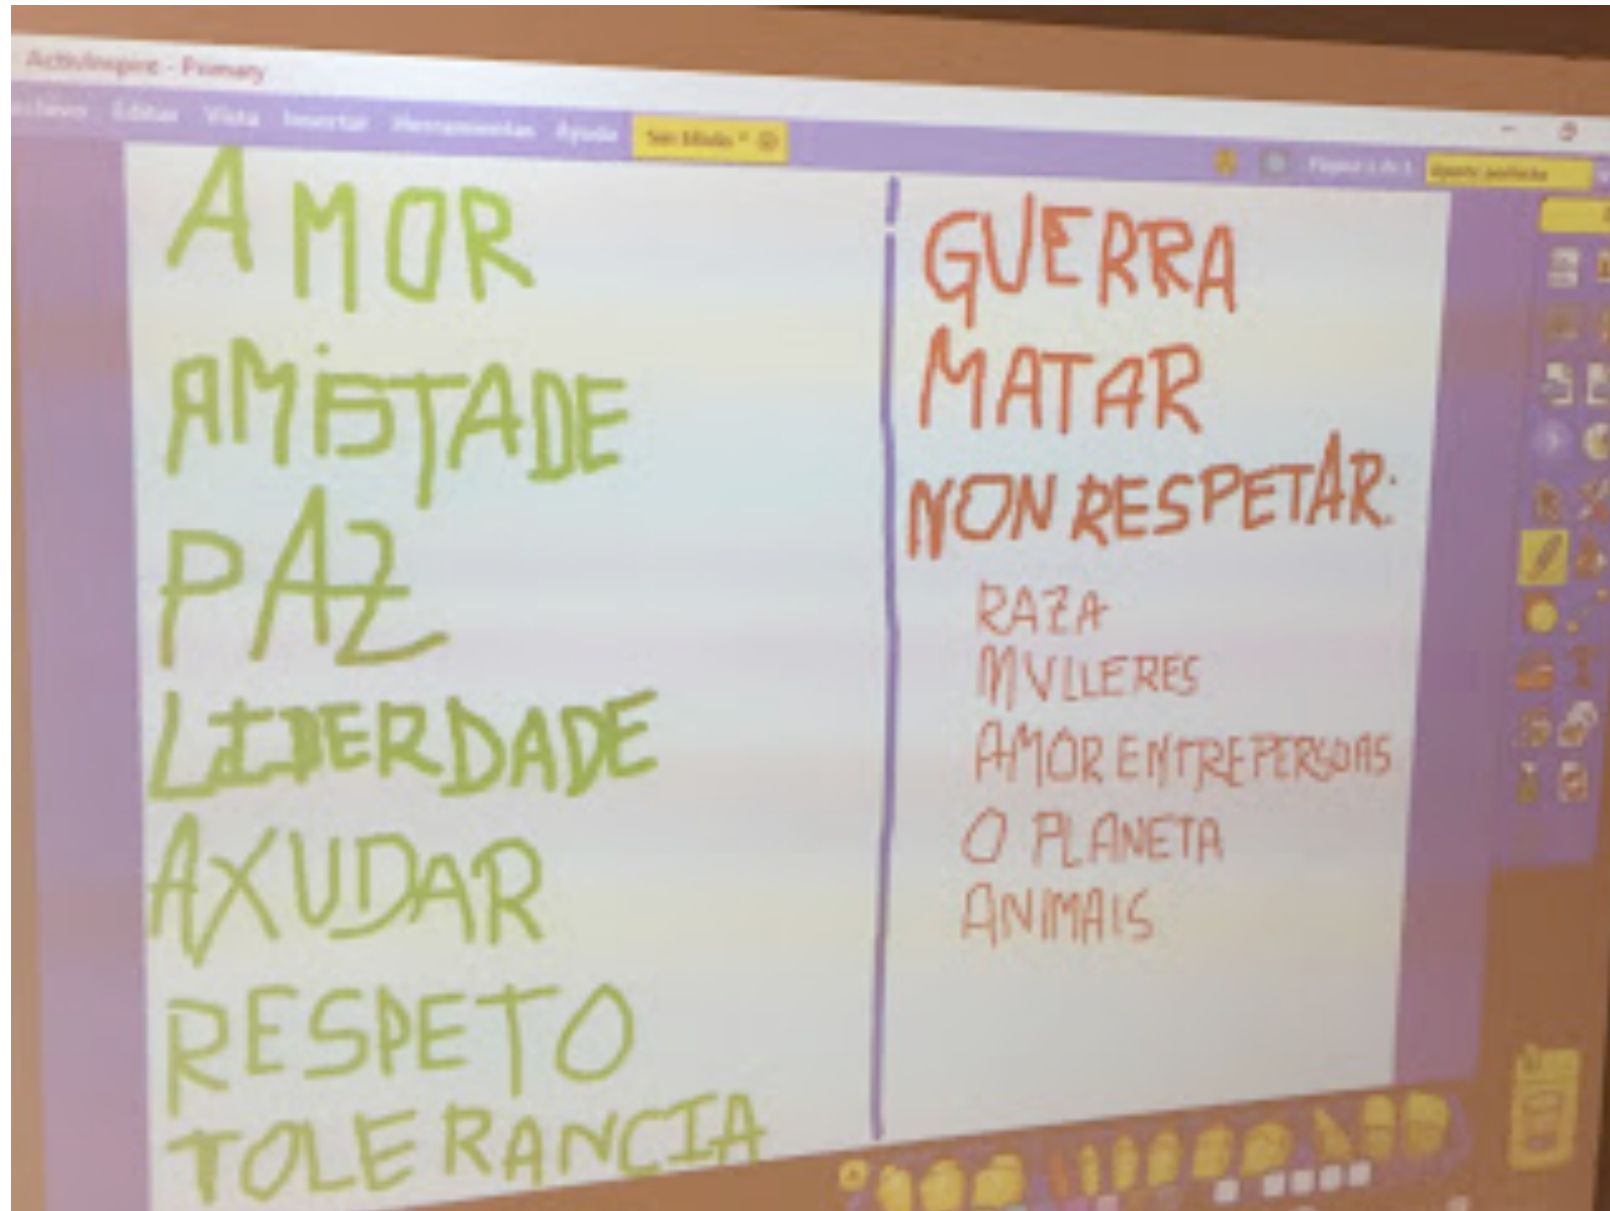 ActivInspire - Primary
Editar Vista Insertar Herramientas Ayuda Sin título *
AMOR
AMISTADE
PAZ
LIBERDADE
AXUDAR
RESPETO
TOLERANCIA
GUERRA
MATAR
NON RESPETAR:
RAZA
MULLERES
AMOR ENTRE PERSOAS
O PLANETA
ANIMAIS